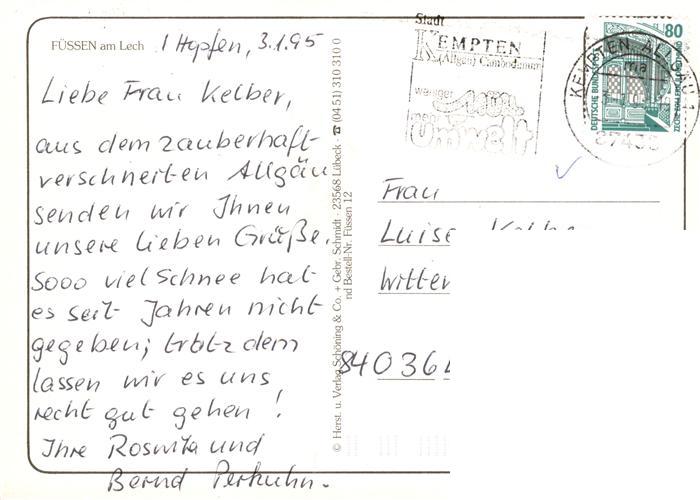 FÜSSEN am Lech / Hopfen, 3.1.95
Liebe Frau Kelber,
aus dem zauberhaft
verschneiten Allgäu
senden wir Ihnen
unsere lieben Grüße.
Sooo viel Schnee hat
es seit Jahren nicht
gegeben; trotz dem
lassen wir es uns
recht gut gehen!
Ihre Rosmita und
Bernd Perkuhn.
© Herst. u. Verlag Schöning & Co. + Gebr. Schmidt · 23568 Lübeck · ☎ (04 51) 310 310 0
nd Bestell-Nr. Füssen 12
Stadt
KEMPTEN
(Allgäu) Cambodunum
weniger
Müll
mehr
Umwelt
KEMPTEN, ALLGÄU 1
87435
80
DEUTSCHE BUNDESPOST
Frau
Luise
Witten
84036 L